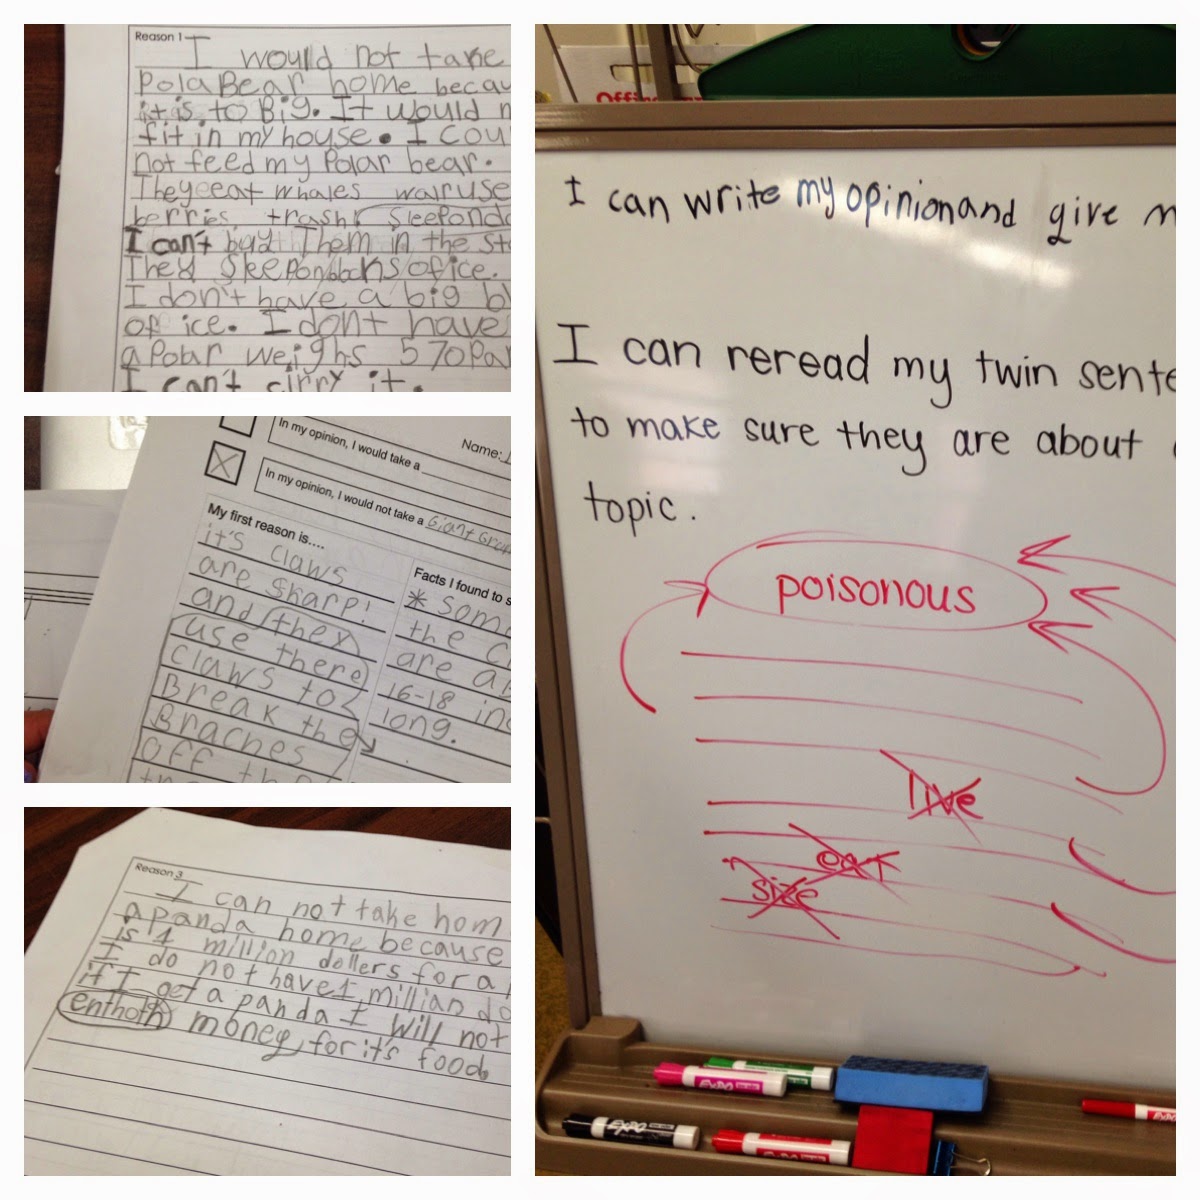 Reason 1
I would not take
Pola Bear home becau
it is to Big. It would n
fit in my house. I cou
not feed my Polar bear.
They eat whales walruse
berries trash sleep on
I can't buy Them in the sto
They sleep on blocks of ice.
I don't have a big bl
of ice. I dont have
a Polar weighs 570 Pa
I can't cirry it.
In my opinion, I would take a
Name:
In my opinion, I would not take a Giant Groun
My first reason is....
it's claws
are sharp!
and they
use there
claws to
Break the
Braches
off the
Facts I found to s
* some
the cl
are a
16-18 inc
long.
Reason 3
I can not take hom
a panda home because
is 1 million dollers for a
I do not have 1 millian do
if I get a panda I will not
enthoth money for it's food.
Offic
I can write my opinion and give m
I can reread my twin sente
to make sure they are about
topic.
poisonous
live
eat
size
EXPO
EXPO
EXPO